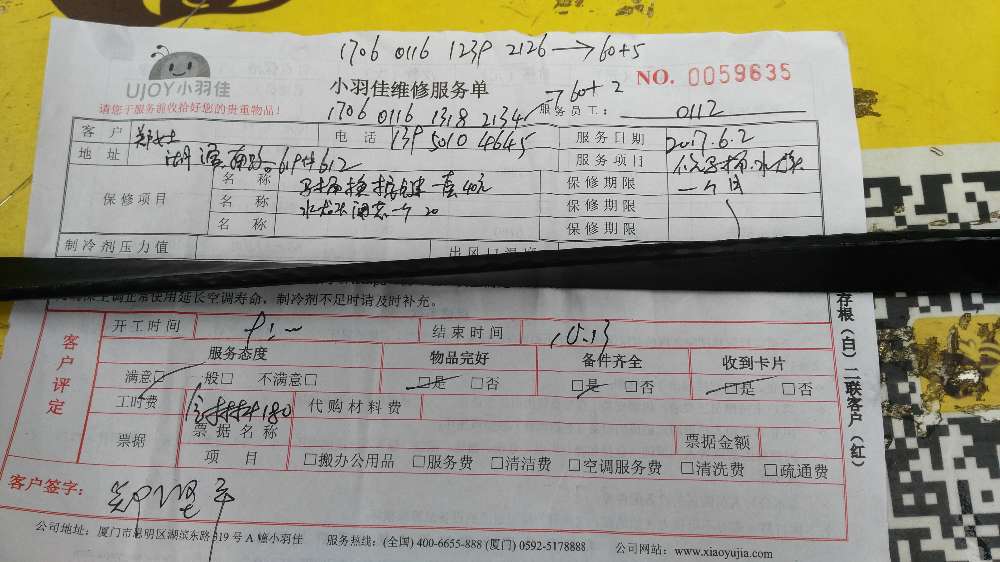 1706 0116 1239 2126→60+5
UJOY小羽佳
小羽佳维修服务单
NO. 0059635
请您于服务前收拾好您的贵重物品!
1706 0116 1318 2134→60+2
服务员工: 0112
客户 郑女士 电话 139 5010 4645 服务日期 2017.6.2
地址 湖滨南路 612 服务项目
保修项目 名称 马桶换按键一套40元 保修期限 一个月
名称 一个 20 保修期限
名称 保修期限
制冷剂压力值
空调正常使用延长空调寿命,制冷剂不足时请及时补充。
客户评定
开工时间 结束时间
服务态度 物品完好 备件齐全 收到卡片
满意□ 一般□ 不满意□ □是 □否 □是 □否 □是 □否
工时费 180 代购材料费
票据 票据名称 票据金额
项目 □搬办公用品 □服务费 □清洁费 □空调服务费 □清洗费 □疏通费
客户签字:
存根(白)二联客户(红)
公司地址:厦门市思明区湖滨东路319号A幢小羽佳 服务热线:(全国) 400-6655-888 (厦门) 0592-5178888 公司网站:www.xiaoyujia.com